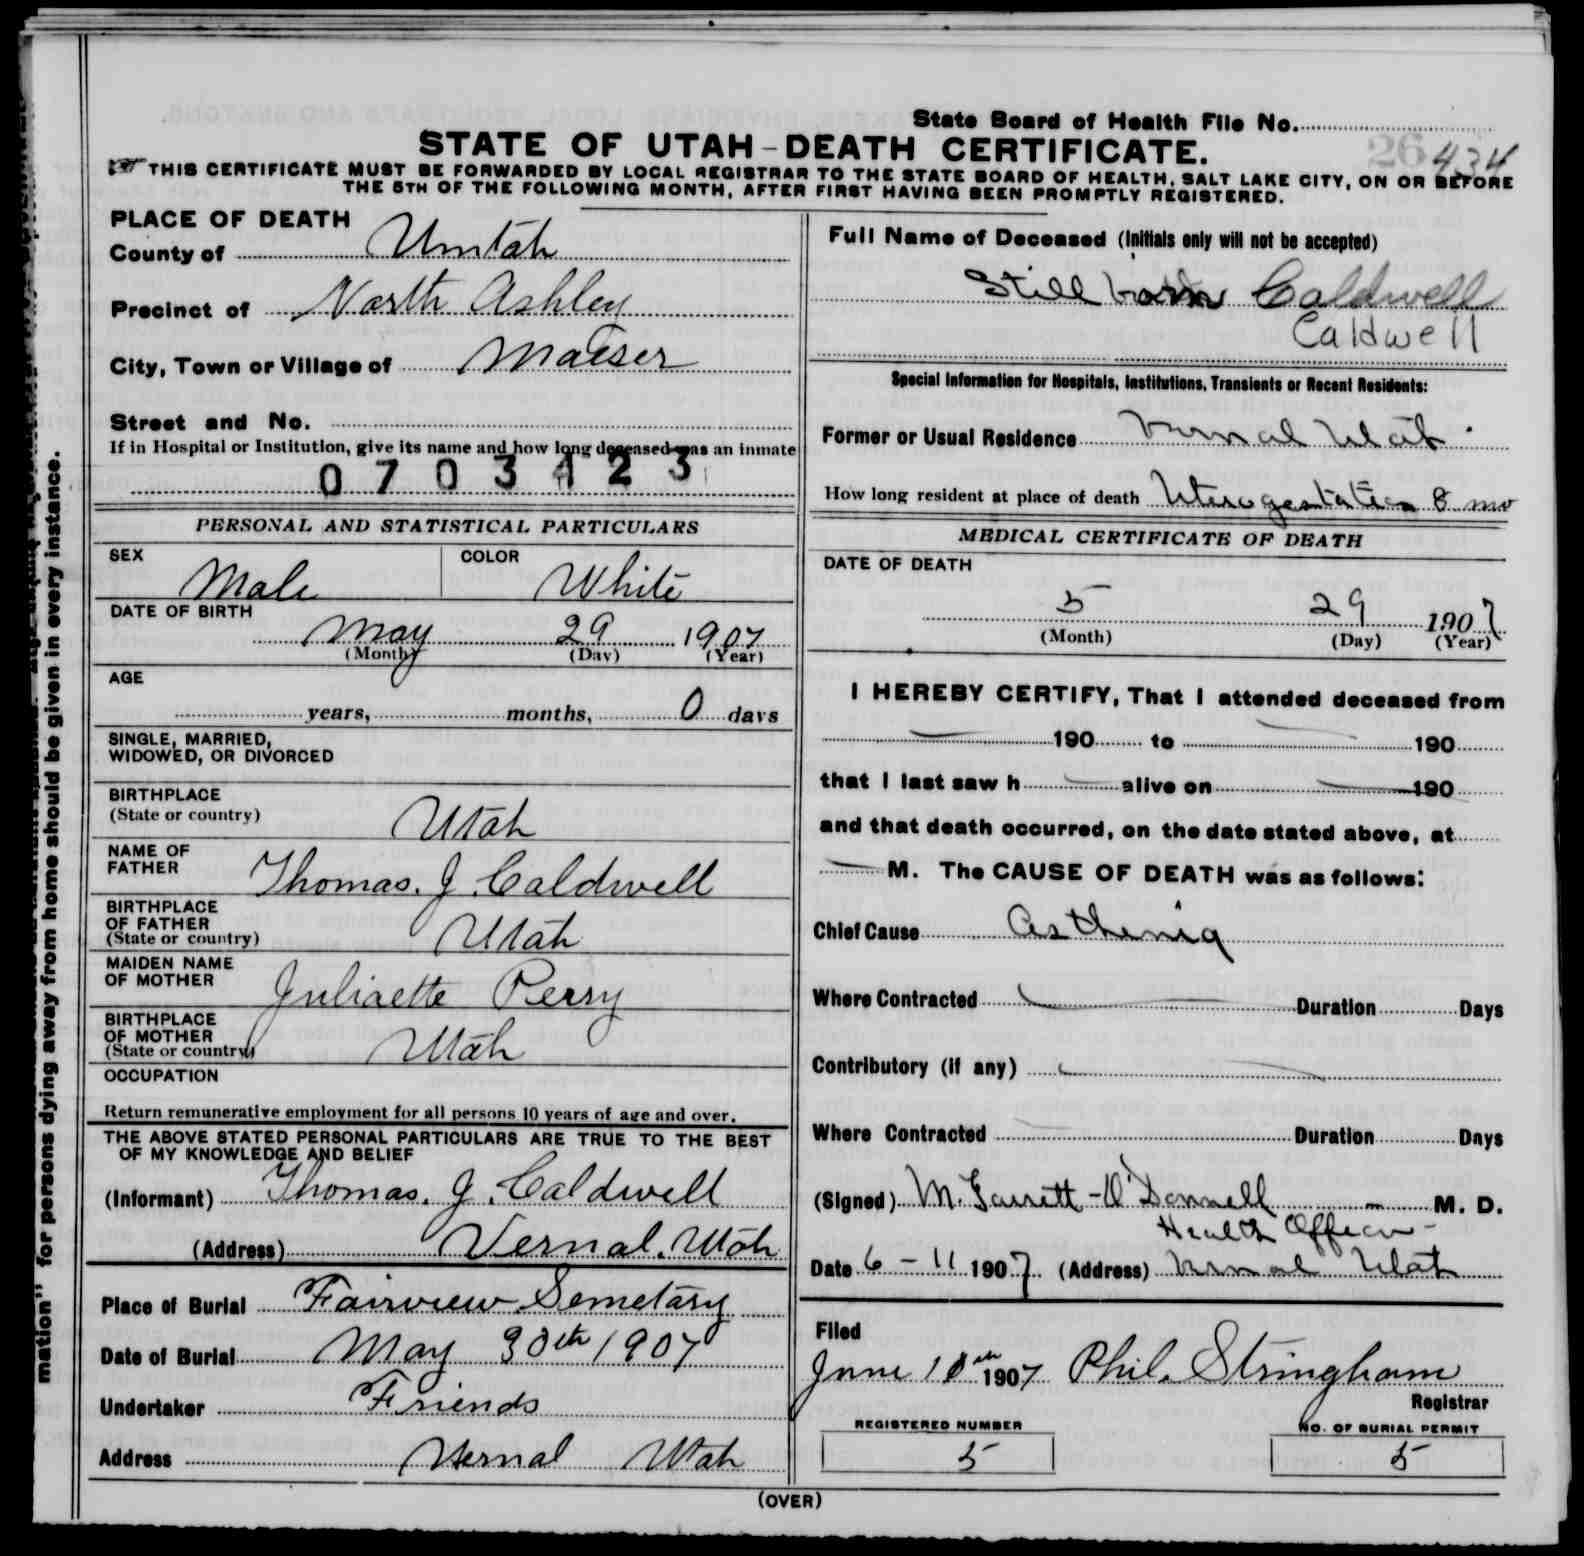 State Board of Health File No.
26 434
STATE OF UTAH-DEATH CERTIFICATE.
THIS CERTIFICATE MUST BE FORWARDED BY LOCAL REGISTRAR TO THE STATE BOARD OF HEALTH, SALT LAKE CITY, ON OR BEFORE
THE 5TH OF THE FOLLOWING MONTH, AFTER FIRST HAVING BEEN PROMPTLY REGISTERED.
PLACE OF DEATH
County of Uintah
Precinct of North Ashley
City, Town or Village of Maeser
Street and No.
If in Hospital or Institution, give its name and how long deceased was an inmate
0703423
PERSONAL AND STATISTICAL PARTICULARS
SEX Male COLOR White
DATE OF BIRTH
May 29 1907
(Month) (Day) (Year)
AGE
years, months, 0 days
SINGLE, MARRIED,
WIDOWED, OR DIVORCED
BIRTHPLACE
(State or country) Utah
NAME OF
FATHER Thomas. J. Caldwell
BIRTHPLACE
OF FATHER
(State or country) Utah
MAIDEN NAME
OF MOTHER Juliaette Perry
BIRTHPLACE
OF MOTHER
(State or country) Utah
OCCUPATION
Return remunerative employment for all persons 10 years of age and over.
THE ABOVE STATED PERSONAL PARTICULARS ARE TRUE TO THE BEST
OF MY KNOWLEDGE AND BELIEF
(Informant) Thomas. J. Caldwell
(Address) Vernal. Utah
Place of Burial Fairview Semetary
Date of Burial May 30th 1907
Undertaker Friends
Address Vernal Utah
Full Name of Deceased (Initials only will not be accepted)
Still born Caldwell
Caldwell
Special Information for Hospitals, Institutions, Transients or Recent Residents:
Former or Usual Residence Vernal Utah
How long resident at place of death Uterogestation 8 mo
MEDICAL CERTIFICATE OF DEATH
DATE OF DEATH
5 29 1907
(Month) (Day) (Year)
I HEREBY CERTIFY, That I attended deceased from
190 to 190
that I last saw h alive on 190
and that death occurred, on the date stated above, at
M. The CAUSE OF DEATH was as follows:
Chief Cause Asthenia
Where Contracted Duration Days
Contributory (if any)
Where Contracted Duration Days
(Signed) M. Garrett-O'Donnell M. D.
Health Officer
Date 6-11 1907 (Address) Vernal Utah
Filed
June 10th 1907 Phil. Stringham
Registrar
REGISTERED NUMBER
5
NO. OF BURIAL PERMIT
5
(OVER)
mation" for persons dying away from home should be given in every instance.